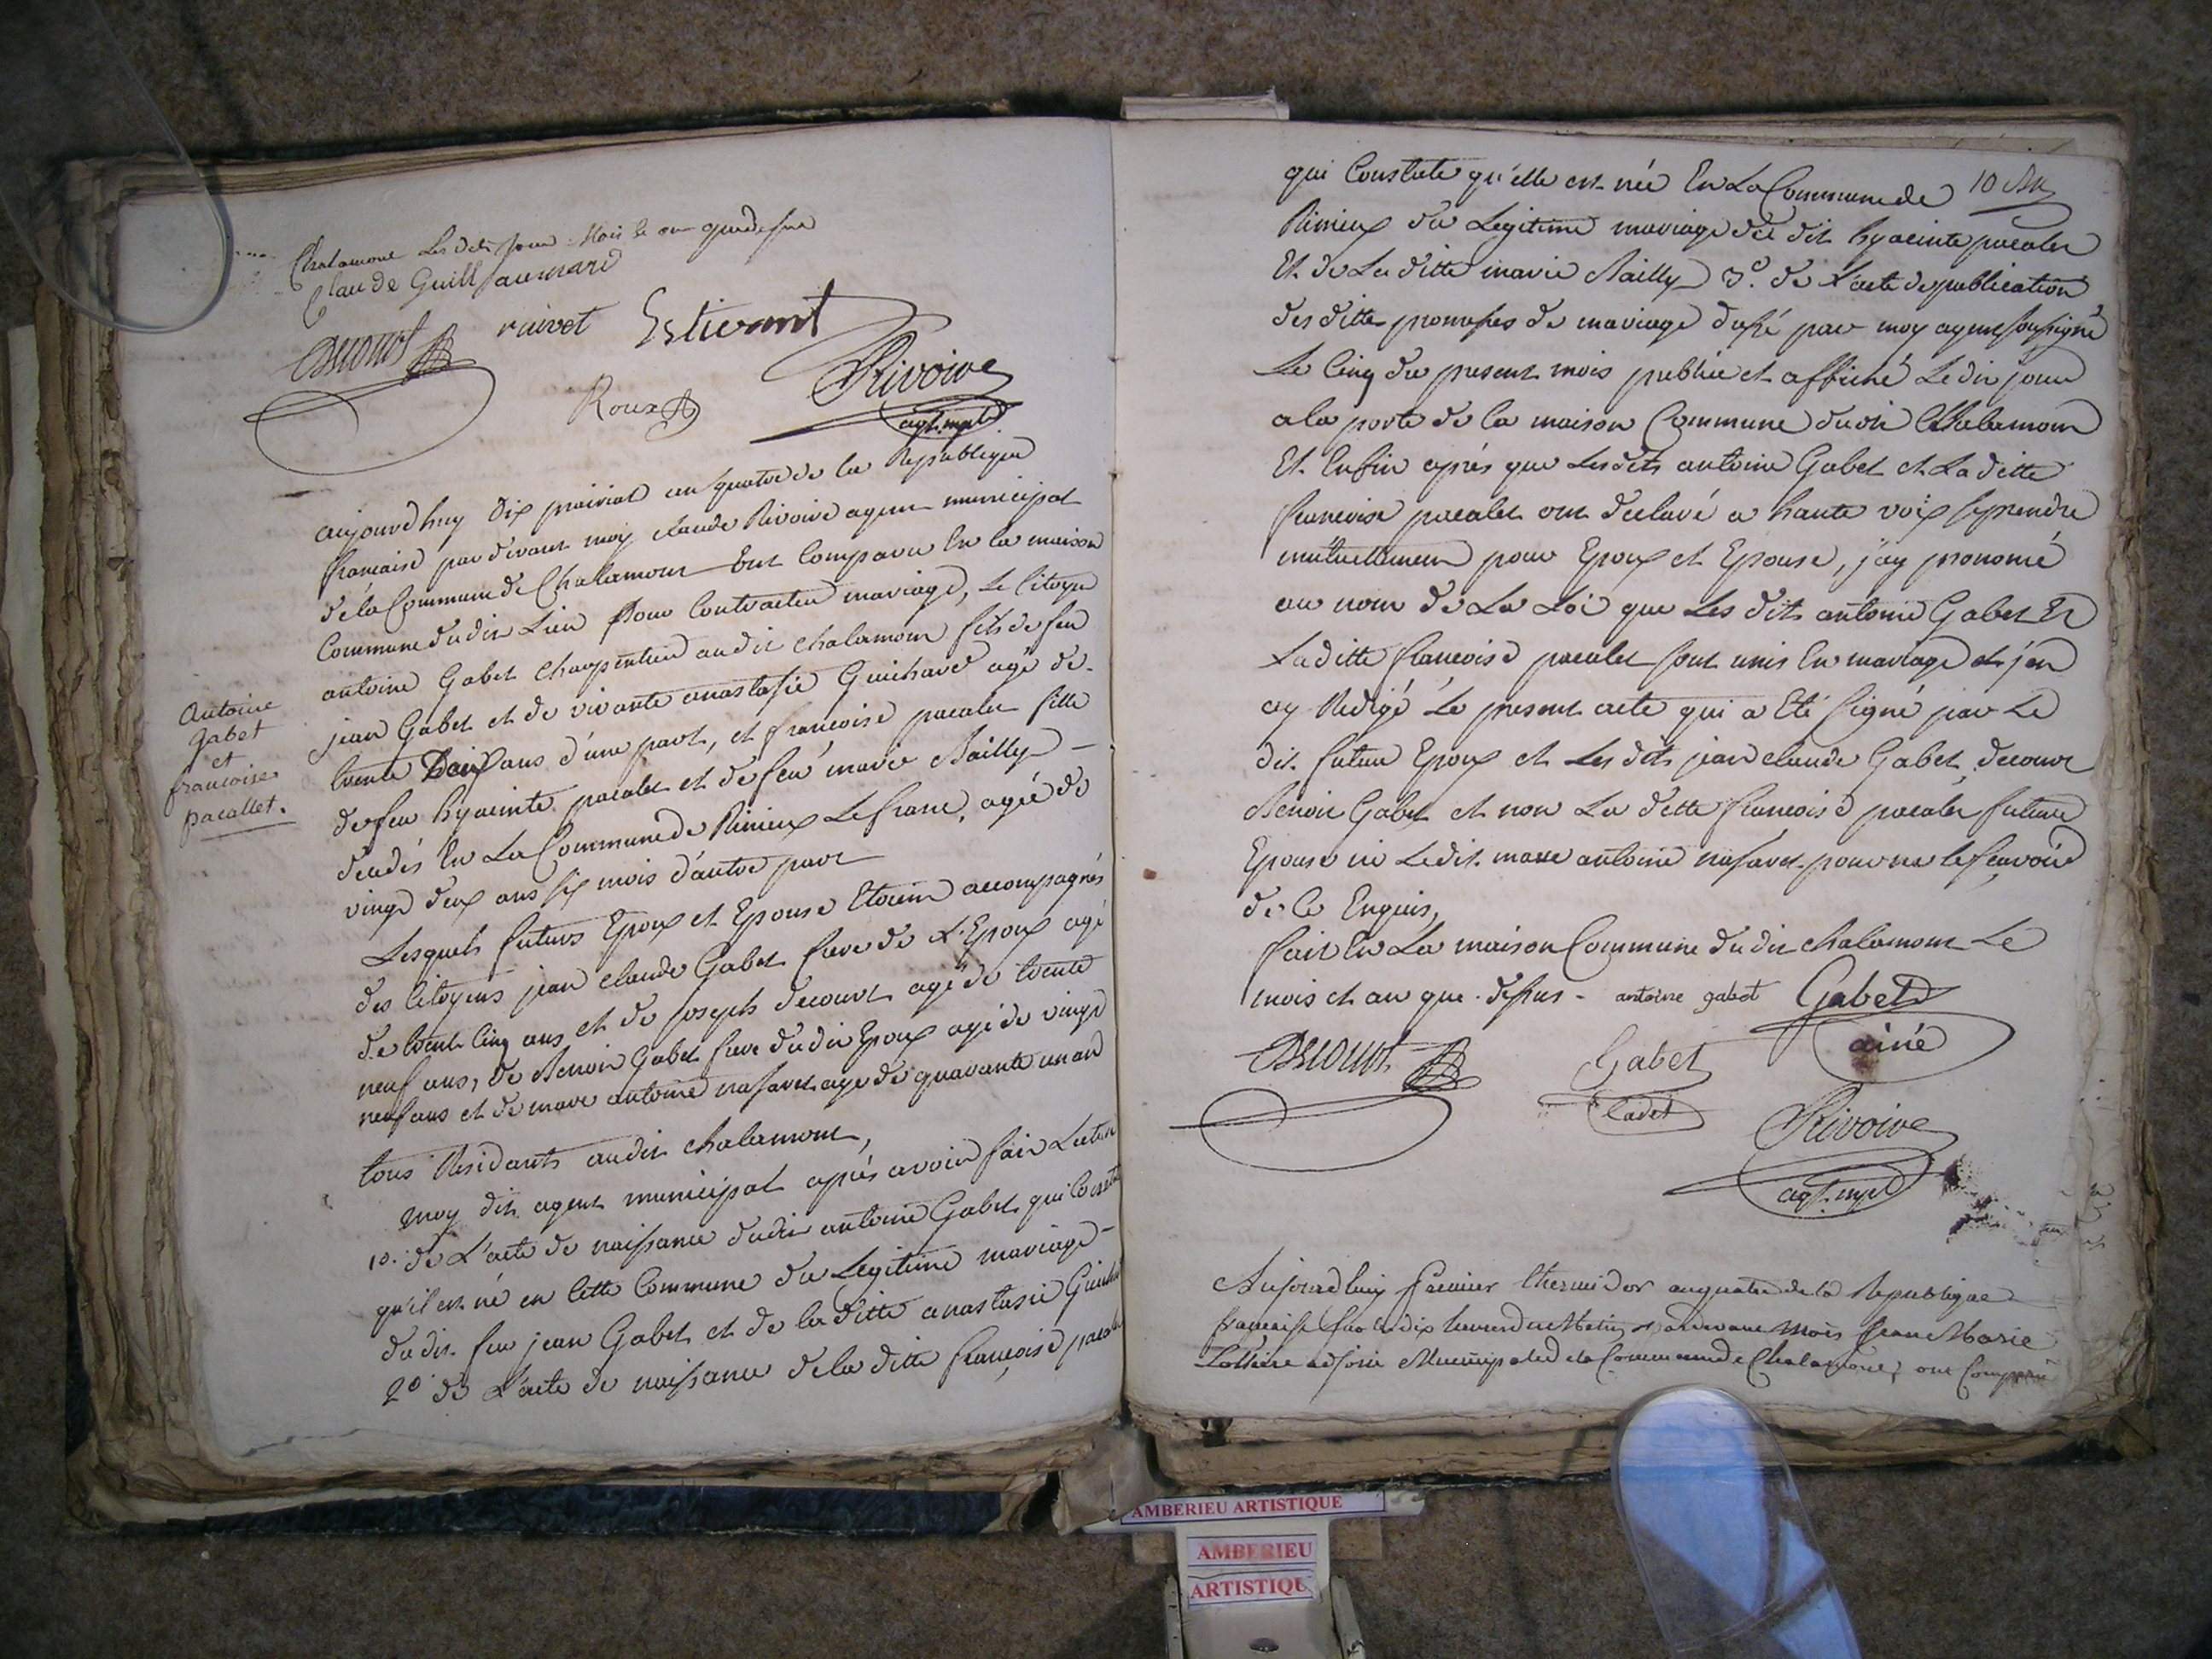 Chalamont Les dits jour mois et an que dessus
Claude Guillaumard
Decourt ruivet Estievant
Roux Rivoire
agt. mpal
aujourdhuy dix prairial an quatre de la Republique
francaise par devant moy claude Rivoire agent municipal
de la Commune de Chalamont ont Comparu En la maison
Commune dudit Lieu Pour Contracter mariage, Le Citoyen
antoine Gabet Charpentier audit chalamont fils de feu
jean Gabet et de vivante anastasie Guichard agé de
trente ans d'une part, et francoise pacalet fille
de feu hyacinte pacalet et de feue marie Bailly
En La Commune de Rinieux Le franc, agée de
vingt deux ans six mois d'autre part
Antoine
gabet
et
francoise
pacallet.
Lesquels futurs Epoux et Epouse Etoient accompagnés
des Citoyens jean claude Gabet frere de L'Epoux agé
de trente Cinq ans et de joseph decourt agé de trente
neuf ans, de Benoit Gabet frere dudit Epoux agé de vingt
neuf ans et de marc antoine nasaret agé de quarante un an
tous Residants audit chalamont,
moy dit agent municipal après avoir fait Lecture
1o. de L'acte de naissance dudit antoine Gabet qui Constate
qu'il est né en Cette Commune du Legitime mariage
du dit feu jean Gabet et de la ditte anastasie Guichard
2o de L'acte de naissance de la ditte françoise pacalet
qui Constate qu'elle est née En La Commune de 10
Rinieux du Legitime mariage du dit hyacinte pacalet
Et de La ditte marie Bailly 3o. de L'acte de publication
des dittes promesses de mariage dressé par moy agent soussigné
Le Cinq du present mois publié et affiché Ledit jour
a la porte de la maison Commune dudit Chalamont
Et Enfin après que Lesdits antoine Gabet et La ditte
francoise pacalet ont declaré a haute voix se prendre
mutuellement pour Epoux et Epouse, j'ay prononcé
au nom de La Loi que Les dits antoine Gabet Et
La ditte francoise pacalet sont unis En mariage et j'en
ay Redigé Le present acte qui a Eté signé par Le
dit futur Epoux et Les dits jean claude Gabet, decourt
Benoit Gabet et non La ditte francoise pacalet future
Epouse ni Ledit marc antoine nasaret pour ne le sçavoir
de Ce Enquis,
fait En La maison Commune du dit chalamont Le
mois et an que dessus - antoine gabet Gabet
ainé
Decourt Gabet
Cadet
Rivoire
agt. mpal
Aujourdhuy premier thermidor an quatre de la Republique
francaise sur les dix heures du Matin pardevant Mois Jean Marie
adjoint Municipal de la Commune de Chalamont, ont Comparu
AMBERIEU ARTISTIQUE
AMBERIEU
ARTISTIQU